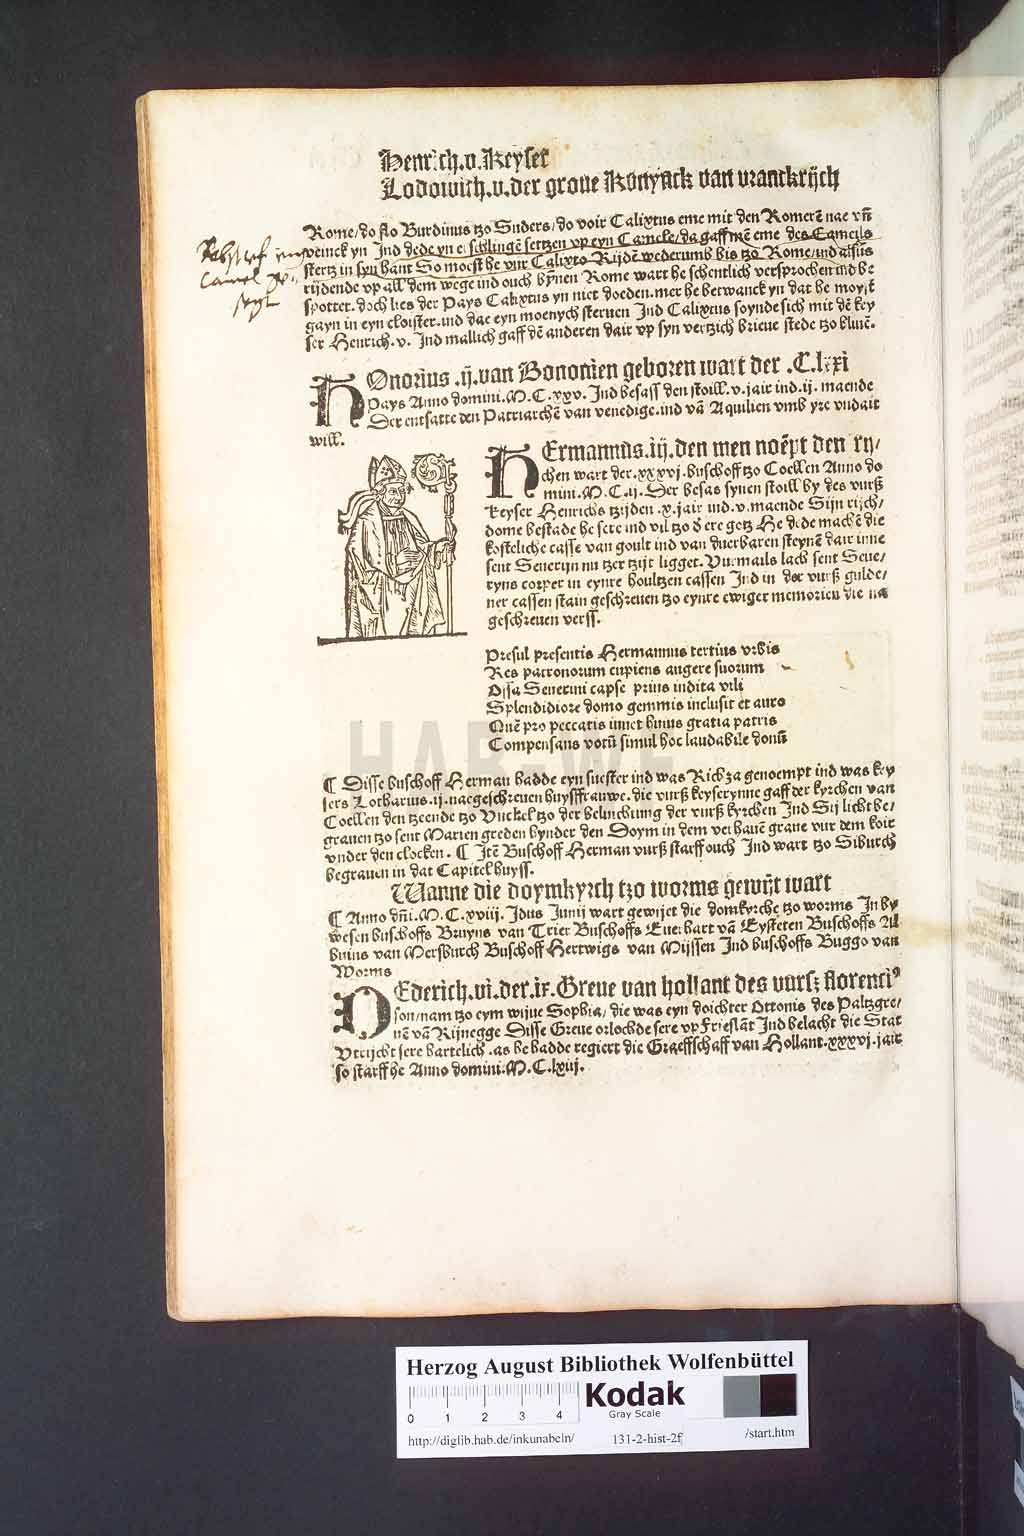 Henrich.v.Keyser
Lodowich.v.der grove Konynck van vranckrijch
Rome/do flo Burdinus tzo Suders/do voir Calixtus eme mit den Romerē nae vñ
veinck yn Ind dede yn ei schlingē setzen vp eyn Camele/da gaff mē eme des Cameils
stertz in syn hant So moest he vur Calixto Rijdē wederumb bis tzo Rome/ind alsus
rijdende vp all dem wege ind ouch bynnen Rome wart he schentlich versprochen ind be
spottet. doch lies der Pays Calixtus yn niet doeden. mer he betwanck yn dat he moyst
gayn in eyn cloister. ind dae eyn moenych sterven Ind Calixtus soynde sich mit dē key
ser Henrich.v. Ind mallich gaff dē anderen dair vp syn vertzich brieve stede tzo blivē.
HOnorius .ij. van Bononien geboren wart der .C.lxxi
Pays Anno domini.M.C.xxv. Ind besass den stoill.v.jair ind.ij. maende
Der entsatte den Patriarchē van venedige.ind vā Aquilien vmb yre vndait
will.
HErmannus.iij.den men noēpt den rij/
chen wart der.xxxvj.buschoff tzo Coellen Anno do
mini.M.C.ij. Der besas synen stoill by des vurß
keyser Henrichs tzijden .x.jair ind.v.maende Sijn rijch/
dome bestade he sere ind vil tzo d ere getz He dede machē die
kosteliche casse van goult ind van duerbaren steynē dair inne
sent Severijn nu tzer tzijt ligget. Vurmails lach sent Seve/
ryns corper in eynre houltzen cassen Ind in der vurß gulde/
ner cassen stain geschreven tzo eynre ewiger memorien die na
geschreven verss.
Presul presentis Hermannus tertius vrbis
Res patronorum cupiens augere suorum
Ossa Severini capse prius indita vili
Splendidiore domo gemmis inclusit et auro
Quē pro peccatis iuvet huius gratia patris
Compensans votū simul hoc laudabile donū
¶ Disse buschoff Herman hadde eyn suester ind was Richza genoempt ind was key
sers Lotharius.ij.naegeschreven huysffrauwe.die vurß keyserynne gaff der kyrchen van
Coellen den tzeende tzo Vuckel tzo der beluchtung der vurß kyrchen Ind Sij licht be/
graven tzo sent Marien greden hynder den Doym in dem verhavē grave vur dem koir
vnder den clocken. ¶ Itē Buschoff Herman vurß starff ouch Ind wart tzo Siburch
begraven in dat Capitelhuyss.
Wanne die doymkyrch tzo worms gewijt wart
¶ Anno dñi.M.C.xviij. Idus Junij wart gewijet die domkyrche tzo worms In by
wesen buschoffs Bruyns van Trier Buschoffs Everhart vā Eysteten Buschoffs Al
buins van Mersburch Buschoff Hertwigs van Mijssen Ind buschoffs Buggo van
Worms
DEderich.vi.der.ix.Greve van hollant des vursz florenci⁹
son/nam tzo eym wijve Sophia/ die was eyn doichter Ottonis des Paltzgre/
vē vā Rijnegge Disse Greve orlochde sere vp Frieslāt Ind belacht die Stat
Vtrijcht sere hartelich .as he hadde regiert die Graeffschaff van Hollant.xxxvj.jair
so starff he Anno domini.M.C.lxiij.
HAB-WF
Herzog August Bibliothek Wolfenbüttel
0 1 2 3 4
Kodak
Gray Scale
http://diglib.hab.de/inkunabeln/ 131-2-hist-2f /start.htm